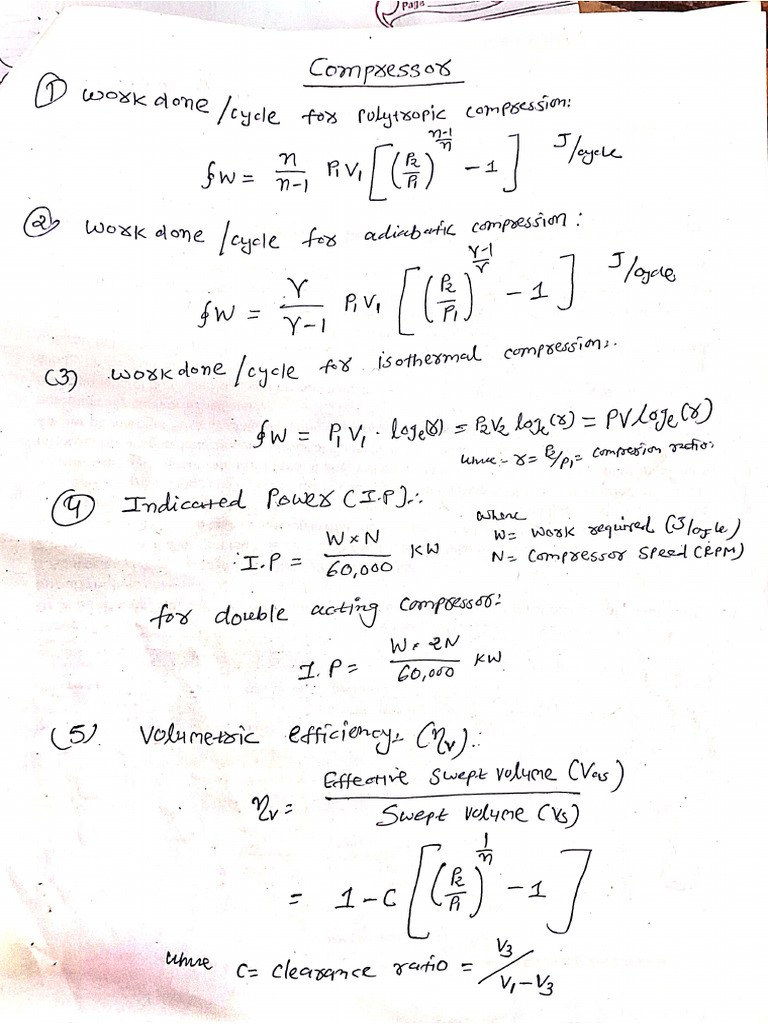 Page
Compressor
(1) Work done/cycle for Polytropic compression:
∮W = n/(n-1) P₁V₁ [(P₂/P₁)^((n-1)/n) - 1] J/cycle
(2) Work done/cycle for adiabatic compression:
∮W = γ/(γ-1) P₁V₁ [(P₂/P₁)^((γ-1)/γ) - 1] J/cycle
(3) Work done/cycle for isothermal compression:
∮W = P₁V₁ · logₑ(r) = P₂V₂ logₑ(r) = PV logₑ(r)
where:- r = P₂/P₁ = compression ratio.
(4) Indicated Power (I.P):
I.P = W×N/60,000 KW
where
W = Work required (J/cycle)
N = Compressor Speed (RPM)
for double acting compressor:
I.P = W×2N/60,000 KW
(5) Volumetric efficiency (ηv):
ηv = Effective Swept volume (Vas) / Swept volume (Vs)
= 1-C [(P₂/P₁)^(1/n) - 1]
where C = Clearance ratio = V₃/(V₁-V₃)